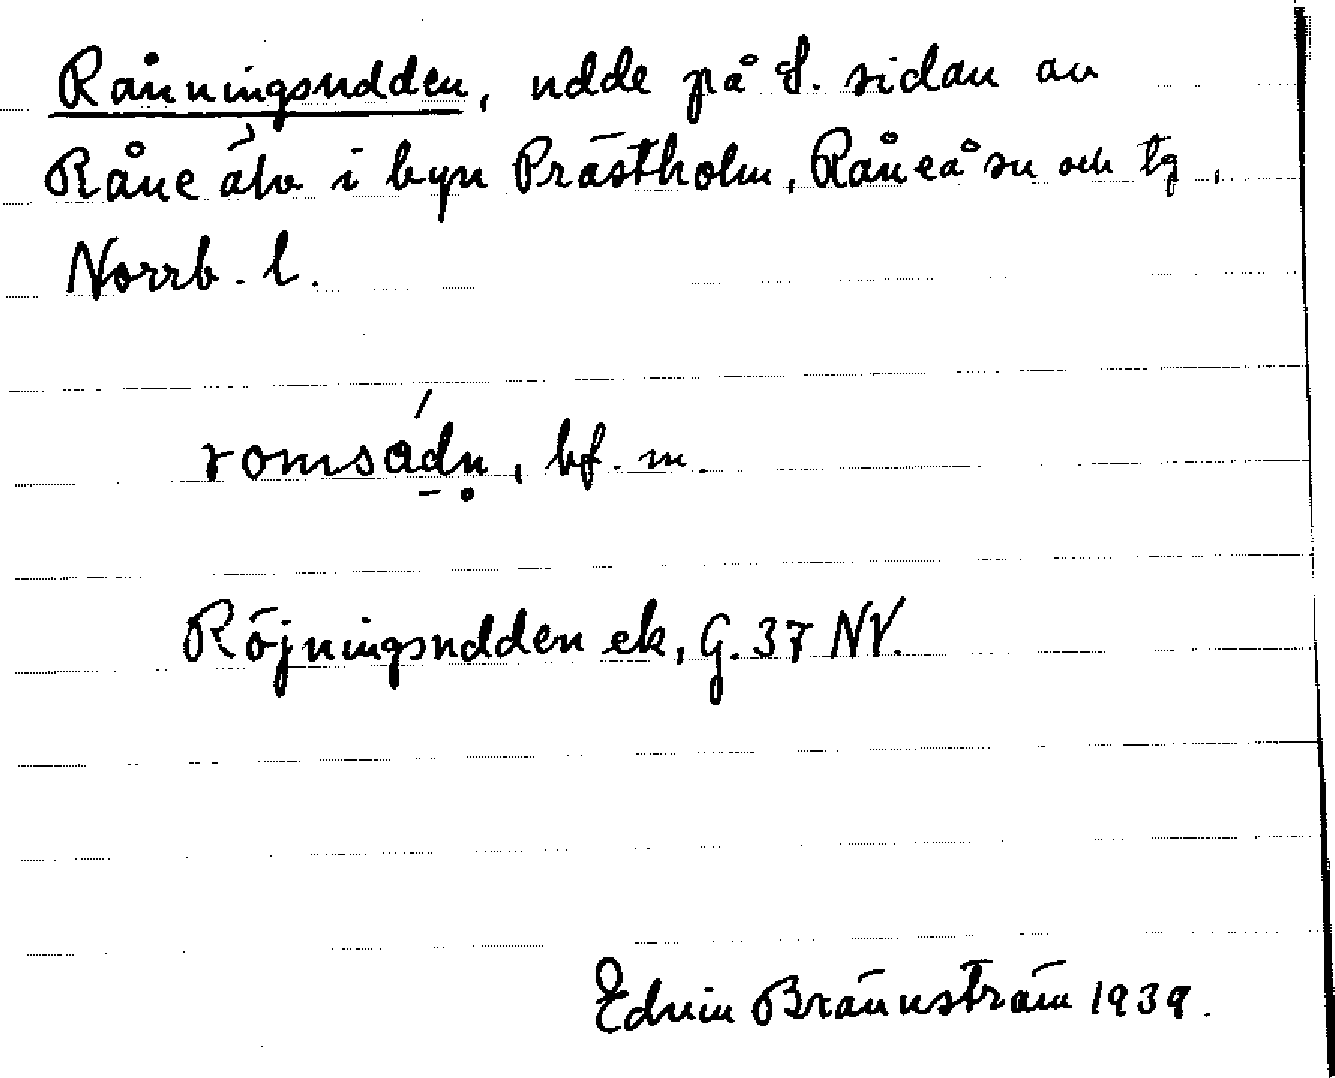 Rånningsudden, udde på S. sidan av
Råne älv i byn Prästholm, Råneå sn och tg,
Norrb. l.
romsadn, bf. m.
Röjningsudden ek, G. 37 NV.
Edvin Brännström 1939.